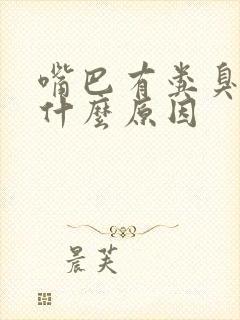 嘴巴有粪臭
什麽原因
晨芙